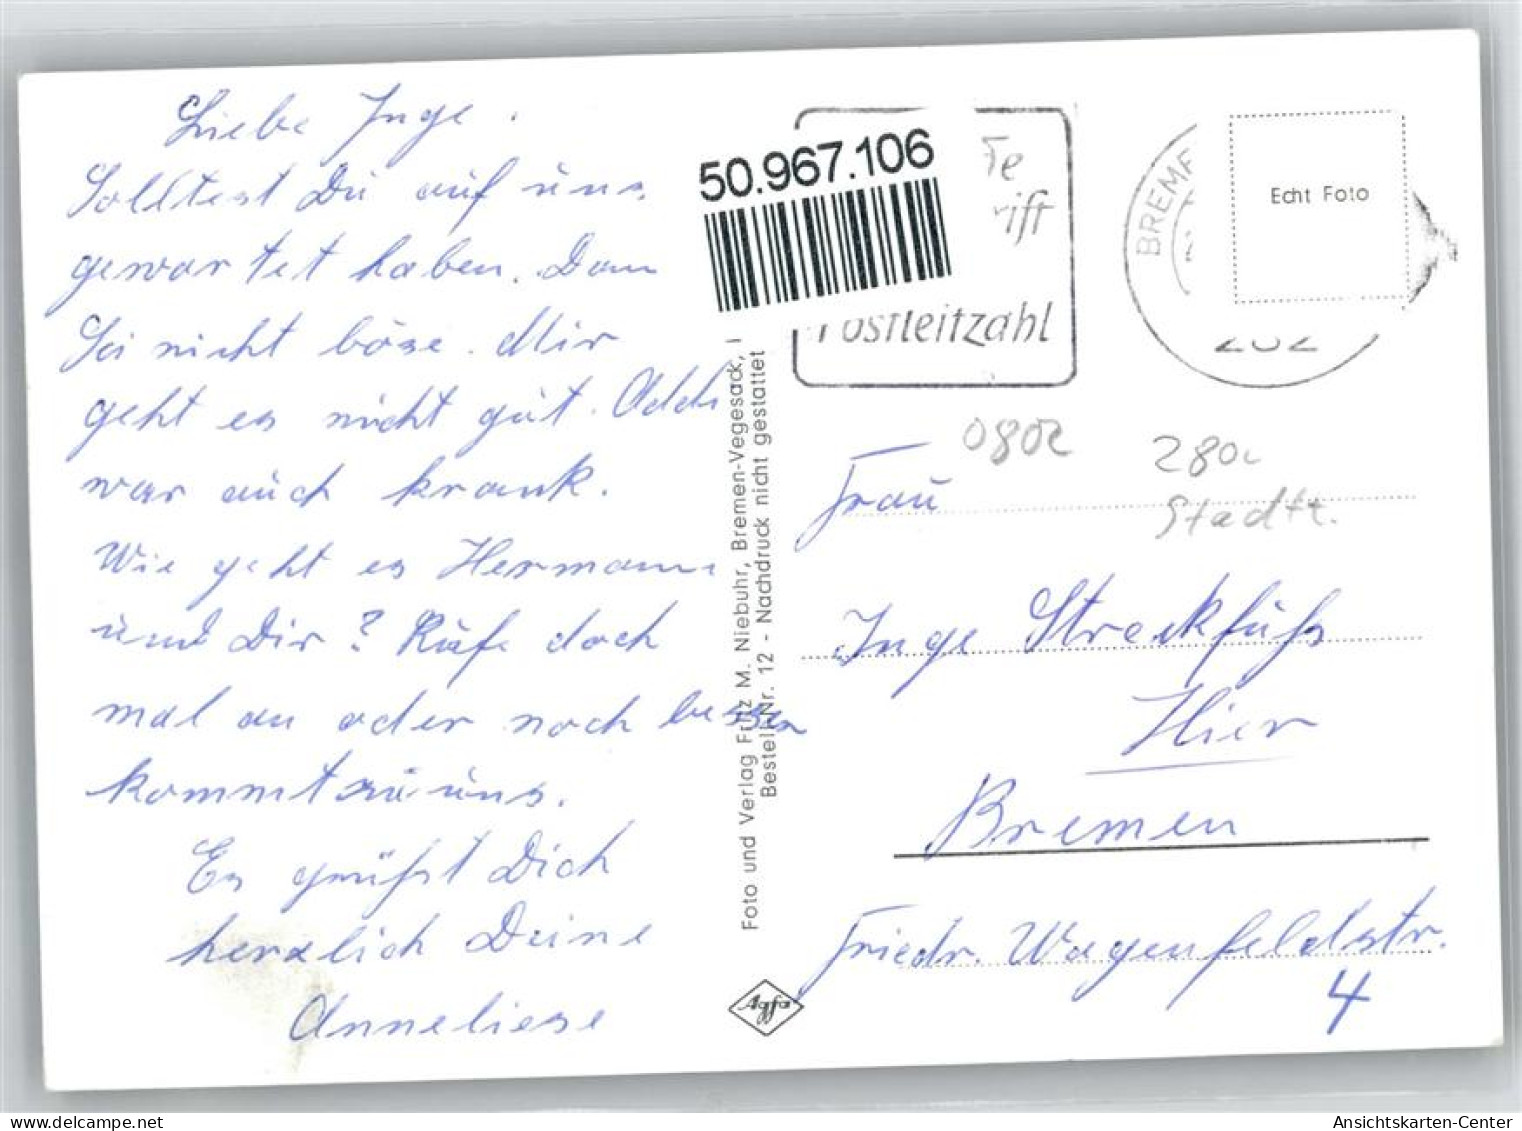 Liebe Inge.
Solltest Du auf uns
gewartet haben. Dann
Sei nicht böse. Mir
geht es nicht gut. Addi
war auch krank.
Wie geht es Hermann
und Dir? Rufe doch
mal an oder noch besser
kommt zu uns.
Es grüßt Dich
herzlich Deine
Anneliese
Foto und Verlag Fritz M. Niebuhr, Bremen-Vegesack,
Bestell-Nr. 12 - Nachdruck nicht gestattet
Agfa
50.967.106
Postleitzahl
BREME
Echt Foto
0802
280
Stadtt.
Frau
Inge Streckfuß
Hier
Bremen
Friedr. Wagenfeldstr.
4
www.delcampe.net
Ansichtskarten-Center